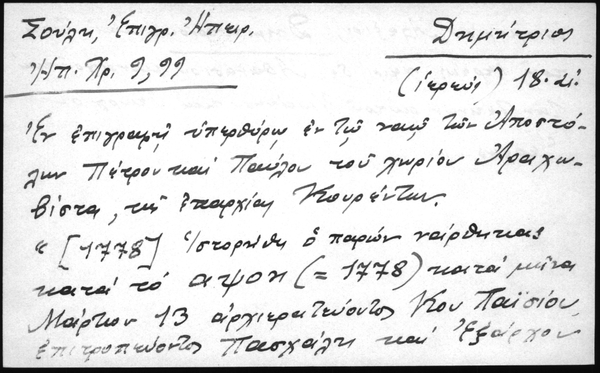 Σούλη, Ἐπιγρ. Ἠπειρ.
Ἠπ. Χρ. 9, 99
Δημήτριος
(ἱερεύς) 18. αἰ.
Ἐν ἐπιγραφῇ ὑπερθύρῳ ἐν τῷ ναῷ τῶν Ἀποστό-
λων Πέτρου καὶ Παύλου τοῦ χωρίου Ἀραχω-
βίστα, τῆς ἐπαρχίας Κουρέντων.
"[1778] Ἱστορήθη ὁ παρών νάρθηκας
κατά τό αψοη (= 1778) κατά μῆνα
Μάρτιον 13 ἀρχιερατεύοντος Κου Παϊσίου,
ἐπιτροπεύοντος Πασχάλη καί Ἐξάρχου